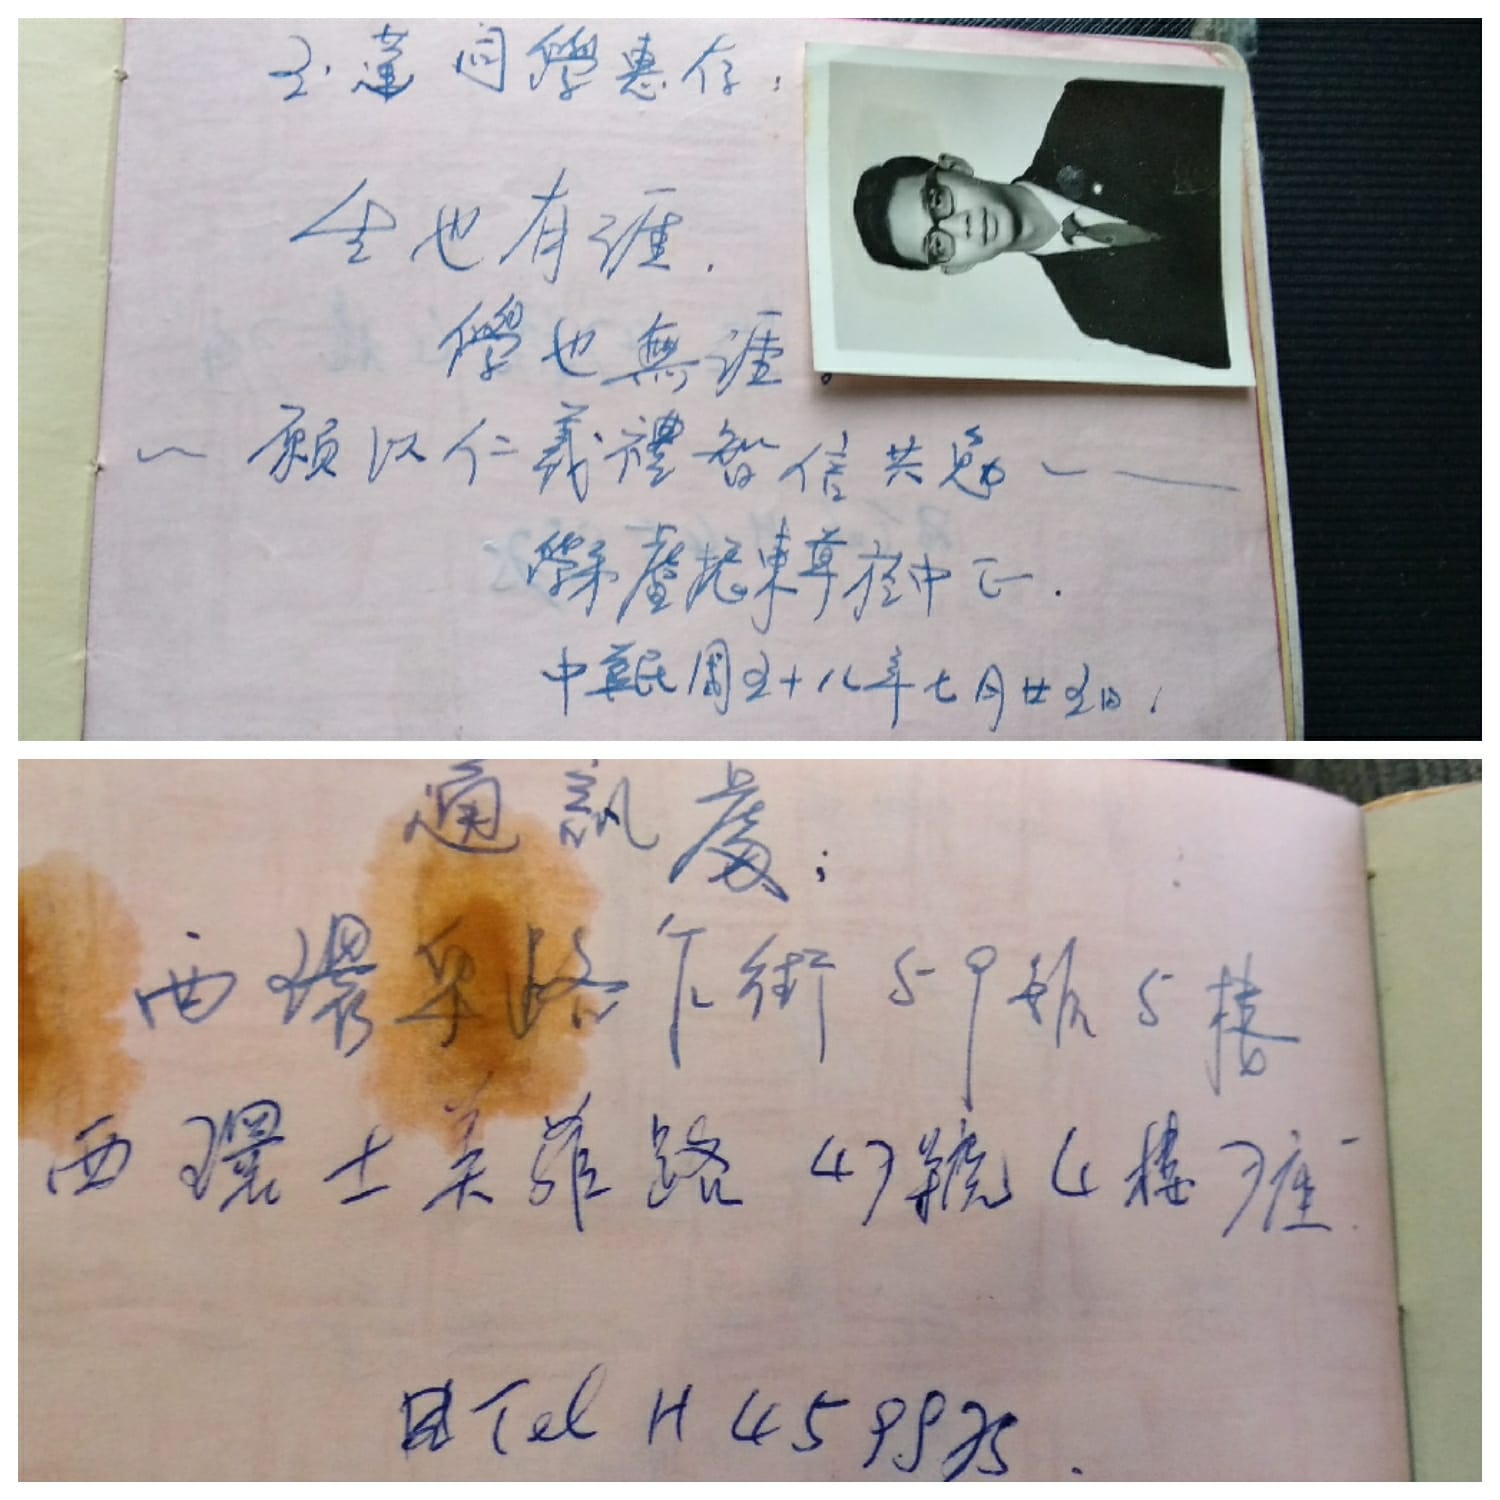 玉蓮同學惠存：
生也有涯．
學也無涯。
～願以仁義禮智信共勉～—
學弟盧振東草於中正．
中華民國五十八年七月廿五日．
通訊處：
西環卑路乍街59號5樓
西環士美菲路47號4樓
Tel H 459975.